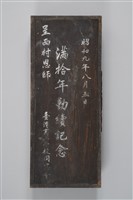 昭和九年八月五日
滿拾年勤續記念
呈西村恩師